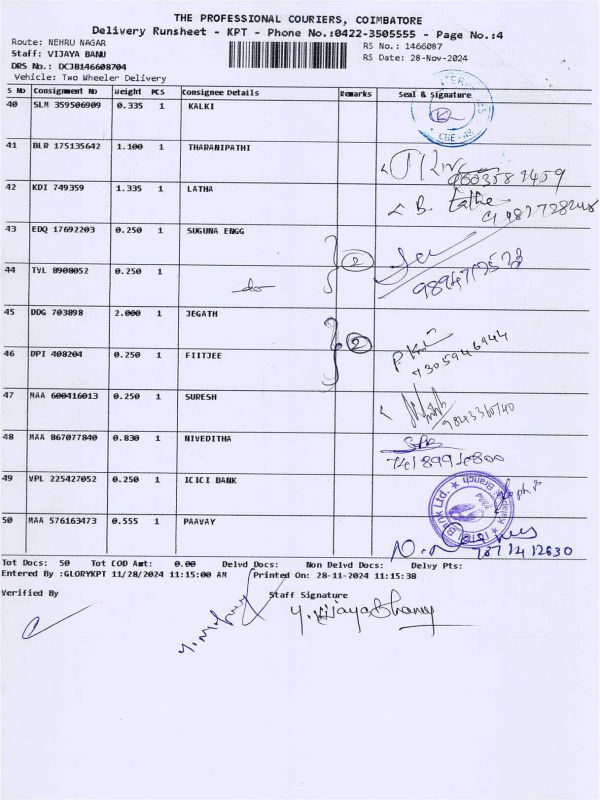 THE PROFESSIONAL COURIERS, COIMBATORE
Delivery Runsheet - KPT - Phone No.:0422-3505555 - Page No.:4
Route: NEHRU NAGAR RS No.: 1466087
Staff: VIJAYA BANU RS Date: 28-Nov-2024
DRS No.: DCJB146608704
Vehicle: Two Wheeler Delivery
S No Consignment No Weight PCS Consignee Details Remarks Seal & Signature
40 SLM 359506909 0.335 1 KALKI
41 BLR 175135642 1.100 1 THARANIPATHI
42 KDI 749359 1.335 1 LATHA B. Latha
43 EDQ 17692203 0.250 1 SUGUNA ENGG 2
44 TVL 8908052 0.250 1 do
45 DDG 703898 2.000 1 JEGATH 2
46 DPI 408204 0.250 1 FIITJEE 7305946944
47 MAA 600416013 0.250 1 SURESH
48 MAA 867077840 0.830 1 NIVEDITHA 7418994800
49 VPL 225427052 0.250 1 ICICI BANK
50 MAA 576163473 0.555 1 PAAVAY
Tot Docs: 50 Tot COD Amt: 0.00 Delvd Docs: Non Delvd Docs: Delvy Pts:
Entered By :GLORYKPT 11/28/2024 11:15:00 AM Printed On: 28-11-2024 11:15:38
Verified By Staff Signature
Y. VijayaBhanu